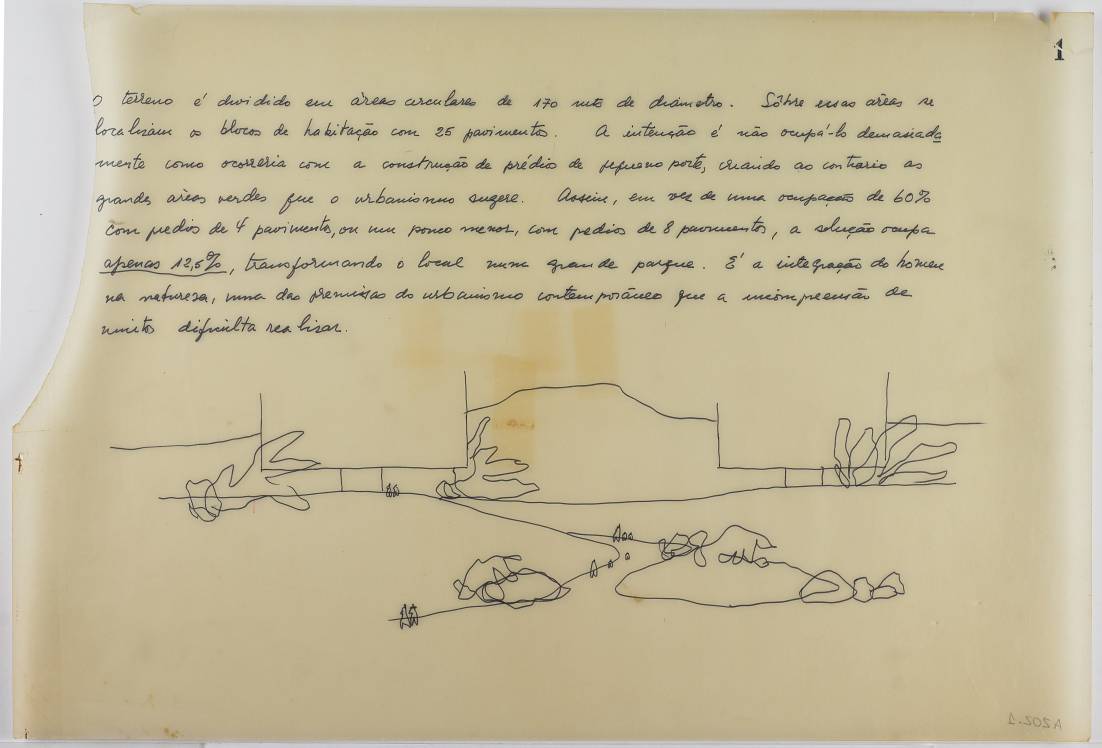 1
O terreno é dividido em áreas circulares de 170 mts de diâmetro. Sôbre essas áreas se
localizam os blocos de habitação com 25 pavimentos. A intenção é não ocupá-lo demasiada
mente como ocorreria com a construção de prédio de pequeno porte, criando ao contrario as
grandes áreas verdes que o urbanismo sugere. Assim, em vez de uma ocupação de 60%
com predios de 4 pavimentos, ou um pouco menor, com predios de 8 pavimentos, a solução ocupa
apenas 12,5%, transformando o local num grande parque. É a integração do homem
na natureza, uma das premissas do urbanismo contemporâneo que a incompreensão de
muitos dificulta realizar.
A202.1